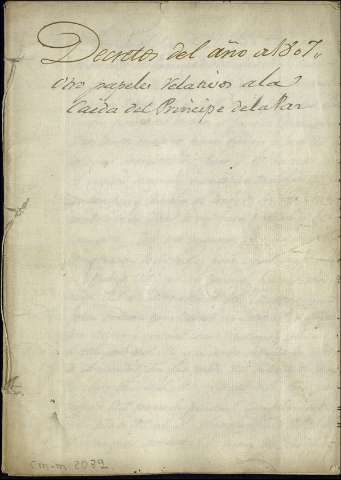 Decretos del año de 1807,,
Otro papeles relativos a la
Caida del Principe de la Paz
Cm-m 2092